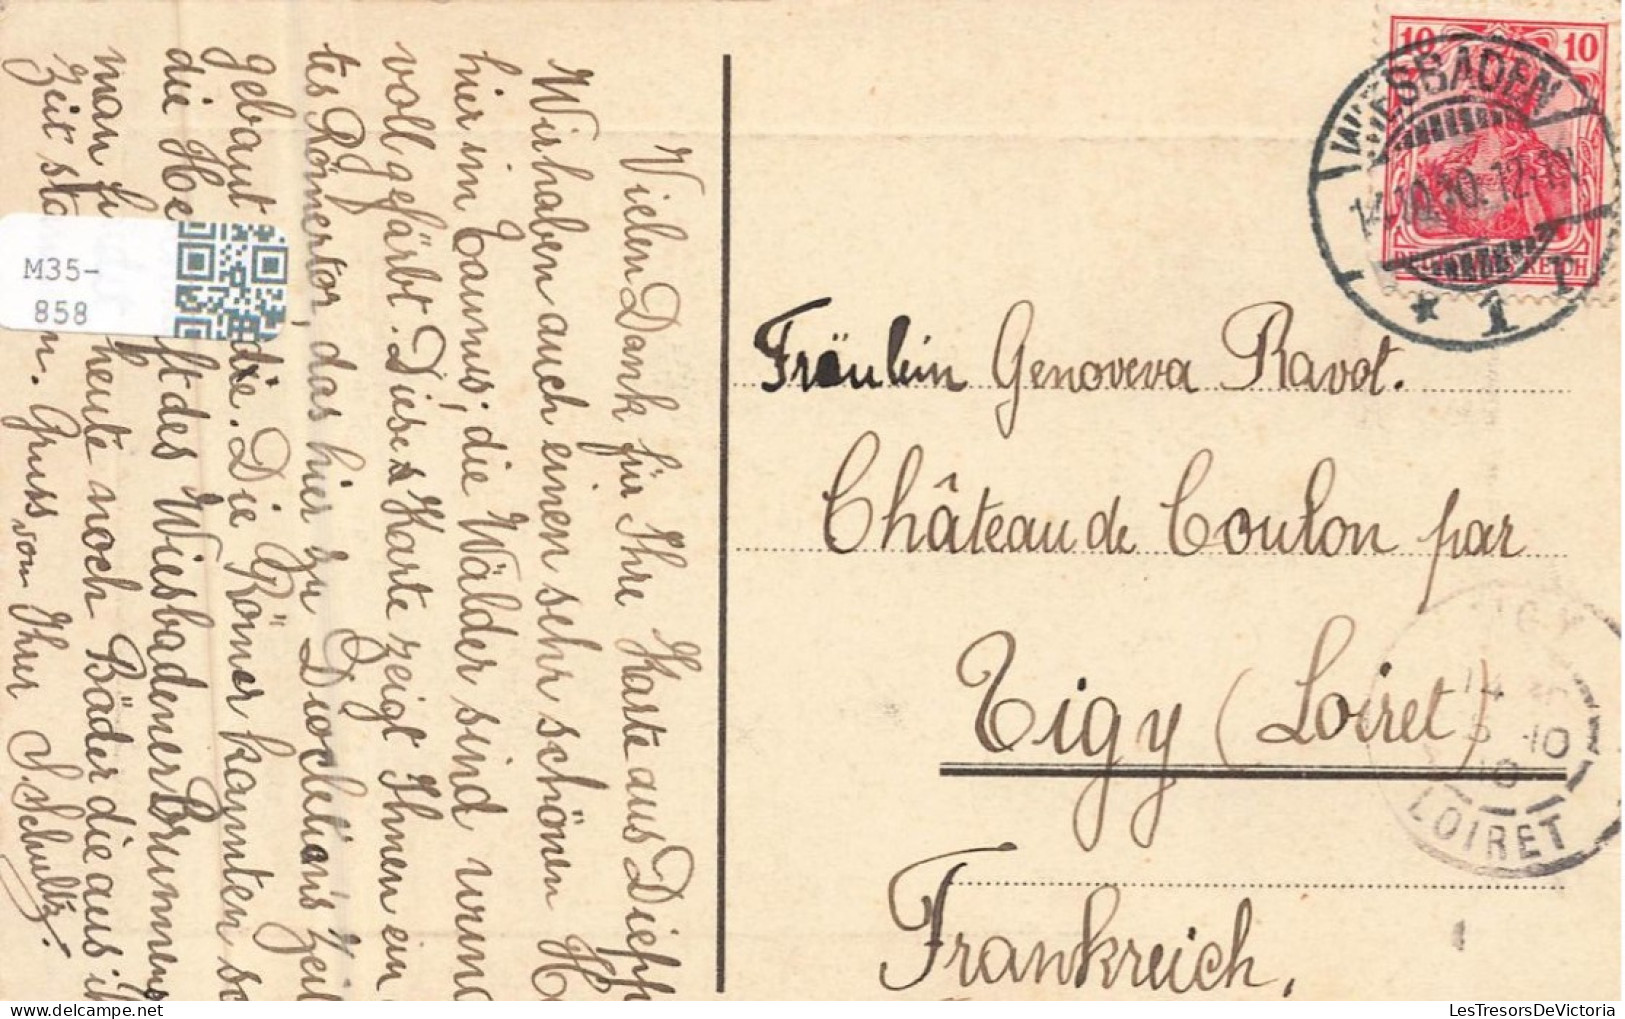 Vielen Dank für Ihre Karte aus Diepp
Wir haben auch einen sehr schönen H
hier im Taunus; die Wälder sind wun
voll gefärbt. Diese Karte zeigt Ihnen ein
tes Römertor, das hier zu Diocletian's Zei
gebaut die. Die Römer kannten s
die He ft des Wiesbadener Brunnens
man fi heute noch Bäder die aus i
Zeit sta n. Gruss von Ihrer S. Schultz.
M35-
858
10 10
WIESBADEN
14.10.10. 12-1N
* 1 r
DEUTSCHES REICH
Fräulein Genoveva Ravot.
Château de Coulon par
Tigy (Loiret)
Frankreich.
TIGY
14
5 -10
10
LOIRET
LesTresorsDeVictoria